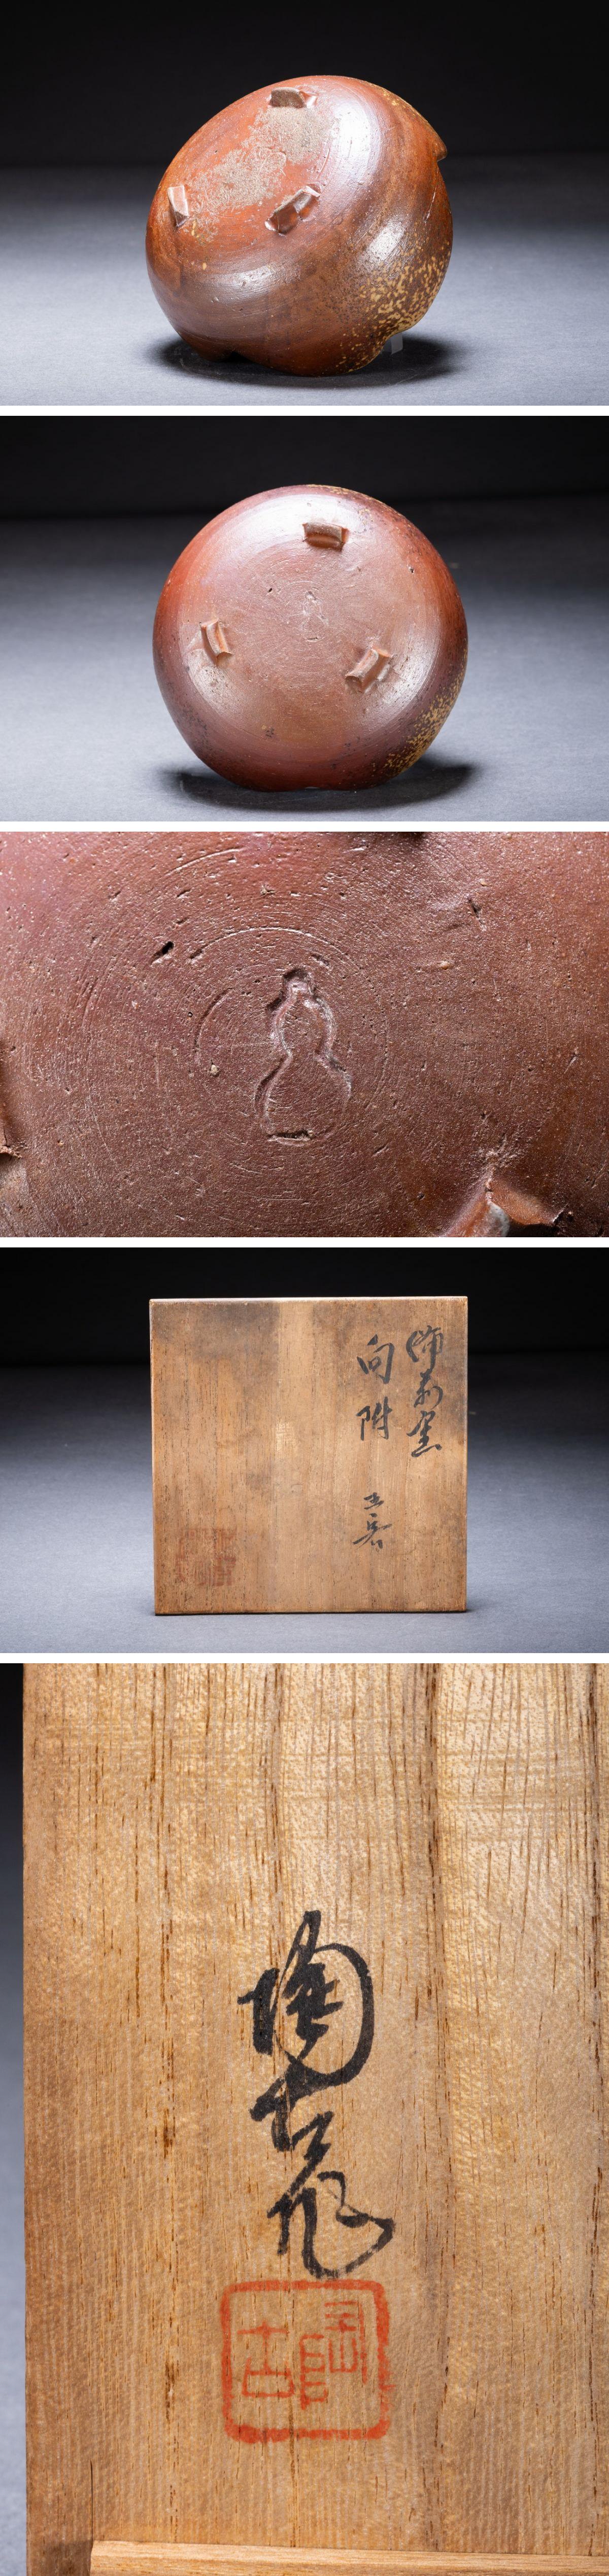 備前窯
向附 五客
陶古作
陶古